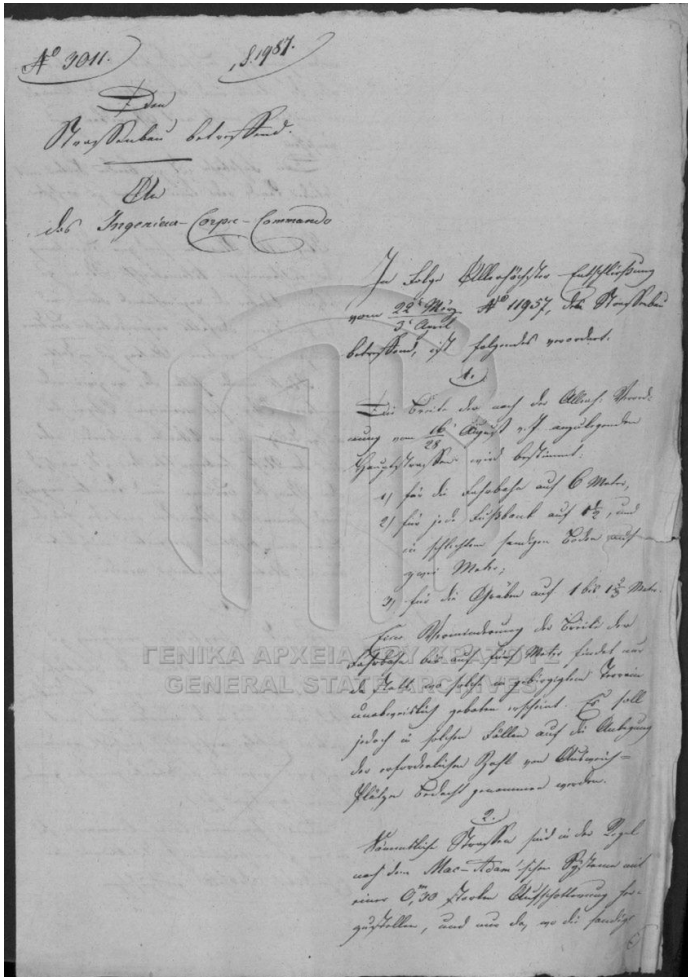 No 3011.
S. 1951.
Den
Strassenbau betreffend.
An
das Ingenieur-Corps-Commando
In Folge Allerhöchster Entschließung
vom 22ten März / 3ten April No 11957, den Strassenbau
betreffend, ist folgendes verordnet.
1.
Die Breite der nach der Allerh. Verord-
nung vom 16/28 August v. J. anzulegenden
Hauptstrassen wird bestimmt:
1) für die Fahrbahn auf 6 Meter,
2) für jede Fußbank auf 1 1/2, und
in schlechtem sandigen Boden auf
zwei Meter;
3) für die Gräben auf 1 bis 1 1/2 Meter.
Eine Verminderung der Breite der
Fahrbahn bis auf fünf Meter findet nur
da statt, wo solche in gebirgigtem Terrain
unabweislich geboten erscheint. Es soll
jedoch in solchen Fällen auf die Anlegung
der erforderlichen Zahl von Ausweich-
Plätze Bedacht genommen werden.
2.
Sämmtliche Strassen sind in der Regel
nach dem Mac-Adam'schen Systeme mit
einer 0,m30 starken Aufschotterung her-
zustellen, und nur da, wo die sandige
ΓΕΝΙΚΑ ΑΡΧΕΙΑ ΤΟΥ ΚΡΑΤΟΥΣ
GENERAL STATE ARCHIVES